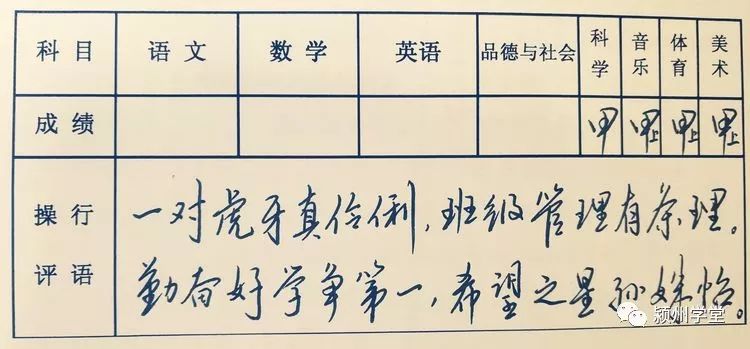 科目 语文 数学 英语 品德与社会 科学 音乐 体育 美术
成绩 甲 甲上 甲上 甲上
操行评语
一对虎牙真伶俐，班级管理有条理。
勤奋好学争第一，希望之星孙姝怡。
颍州学堂